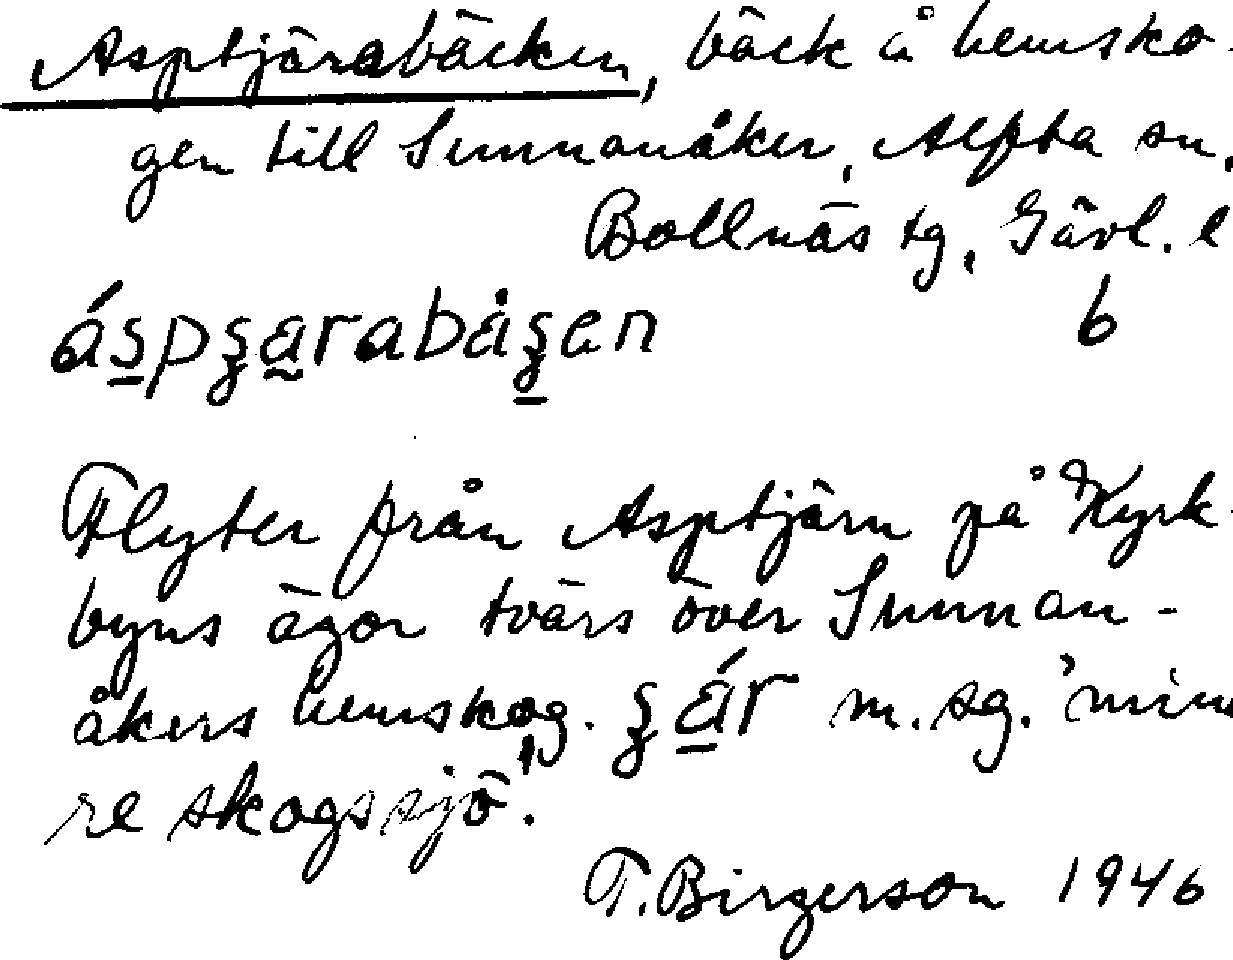 Asptjärabäcken, bäck å hemsko-
gen till Sunnanåker, Alfta sn,
Bollnäs tg, Gävl. l
b
Flyter från Asptjärn på Kyrk-
byns ägor tvärs över Sunnan-
åkers hemskog. m. sg. 'mind
re skogssjö'.
T. Birgerson 1946